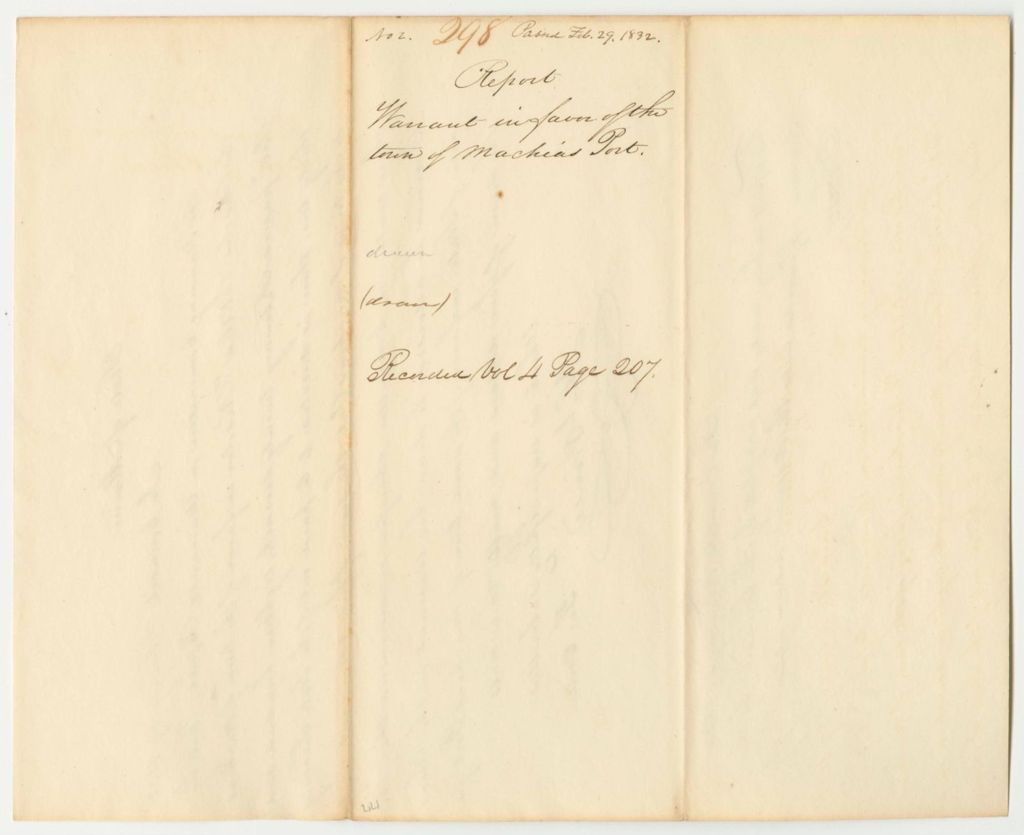 No 2. 298 Passed Feb. 29. 1832.
Report
Warrant in favor of the
town of Machias Port.
drawn
(drawn)
Recorded Vol 4 Page 207.